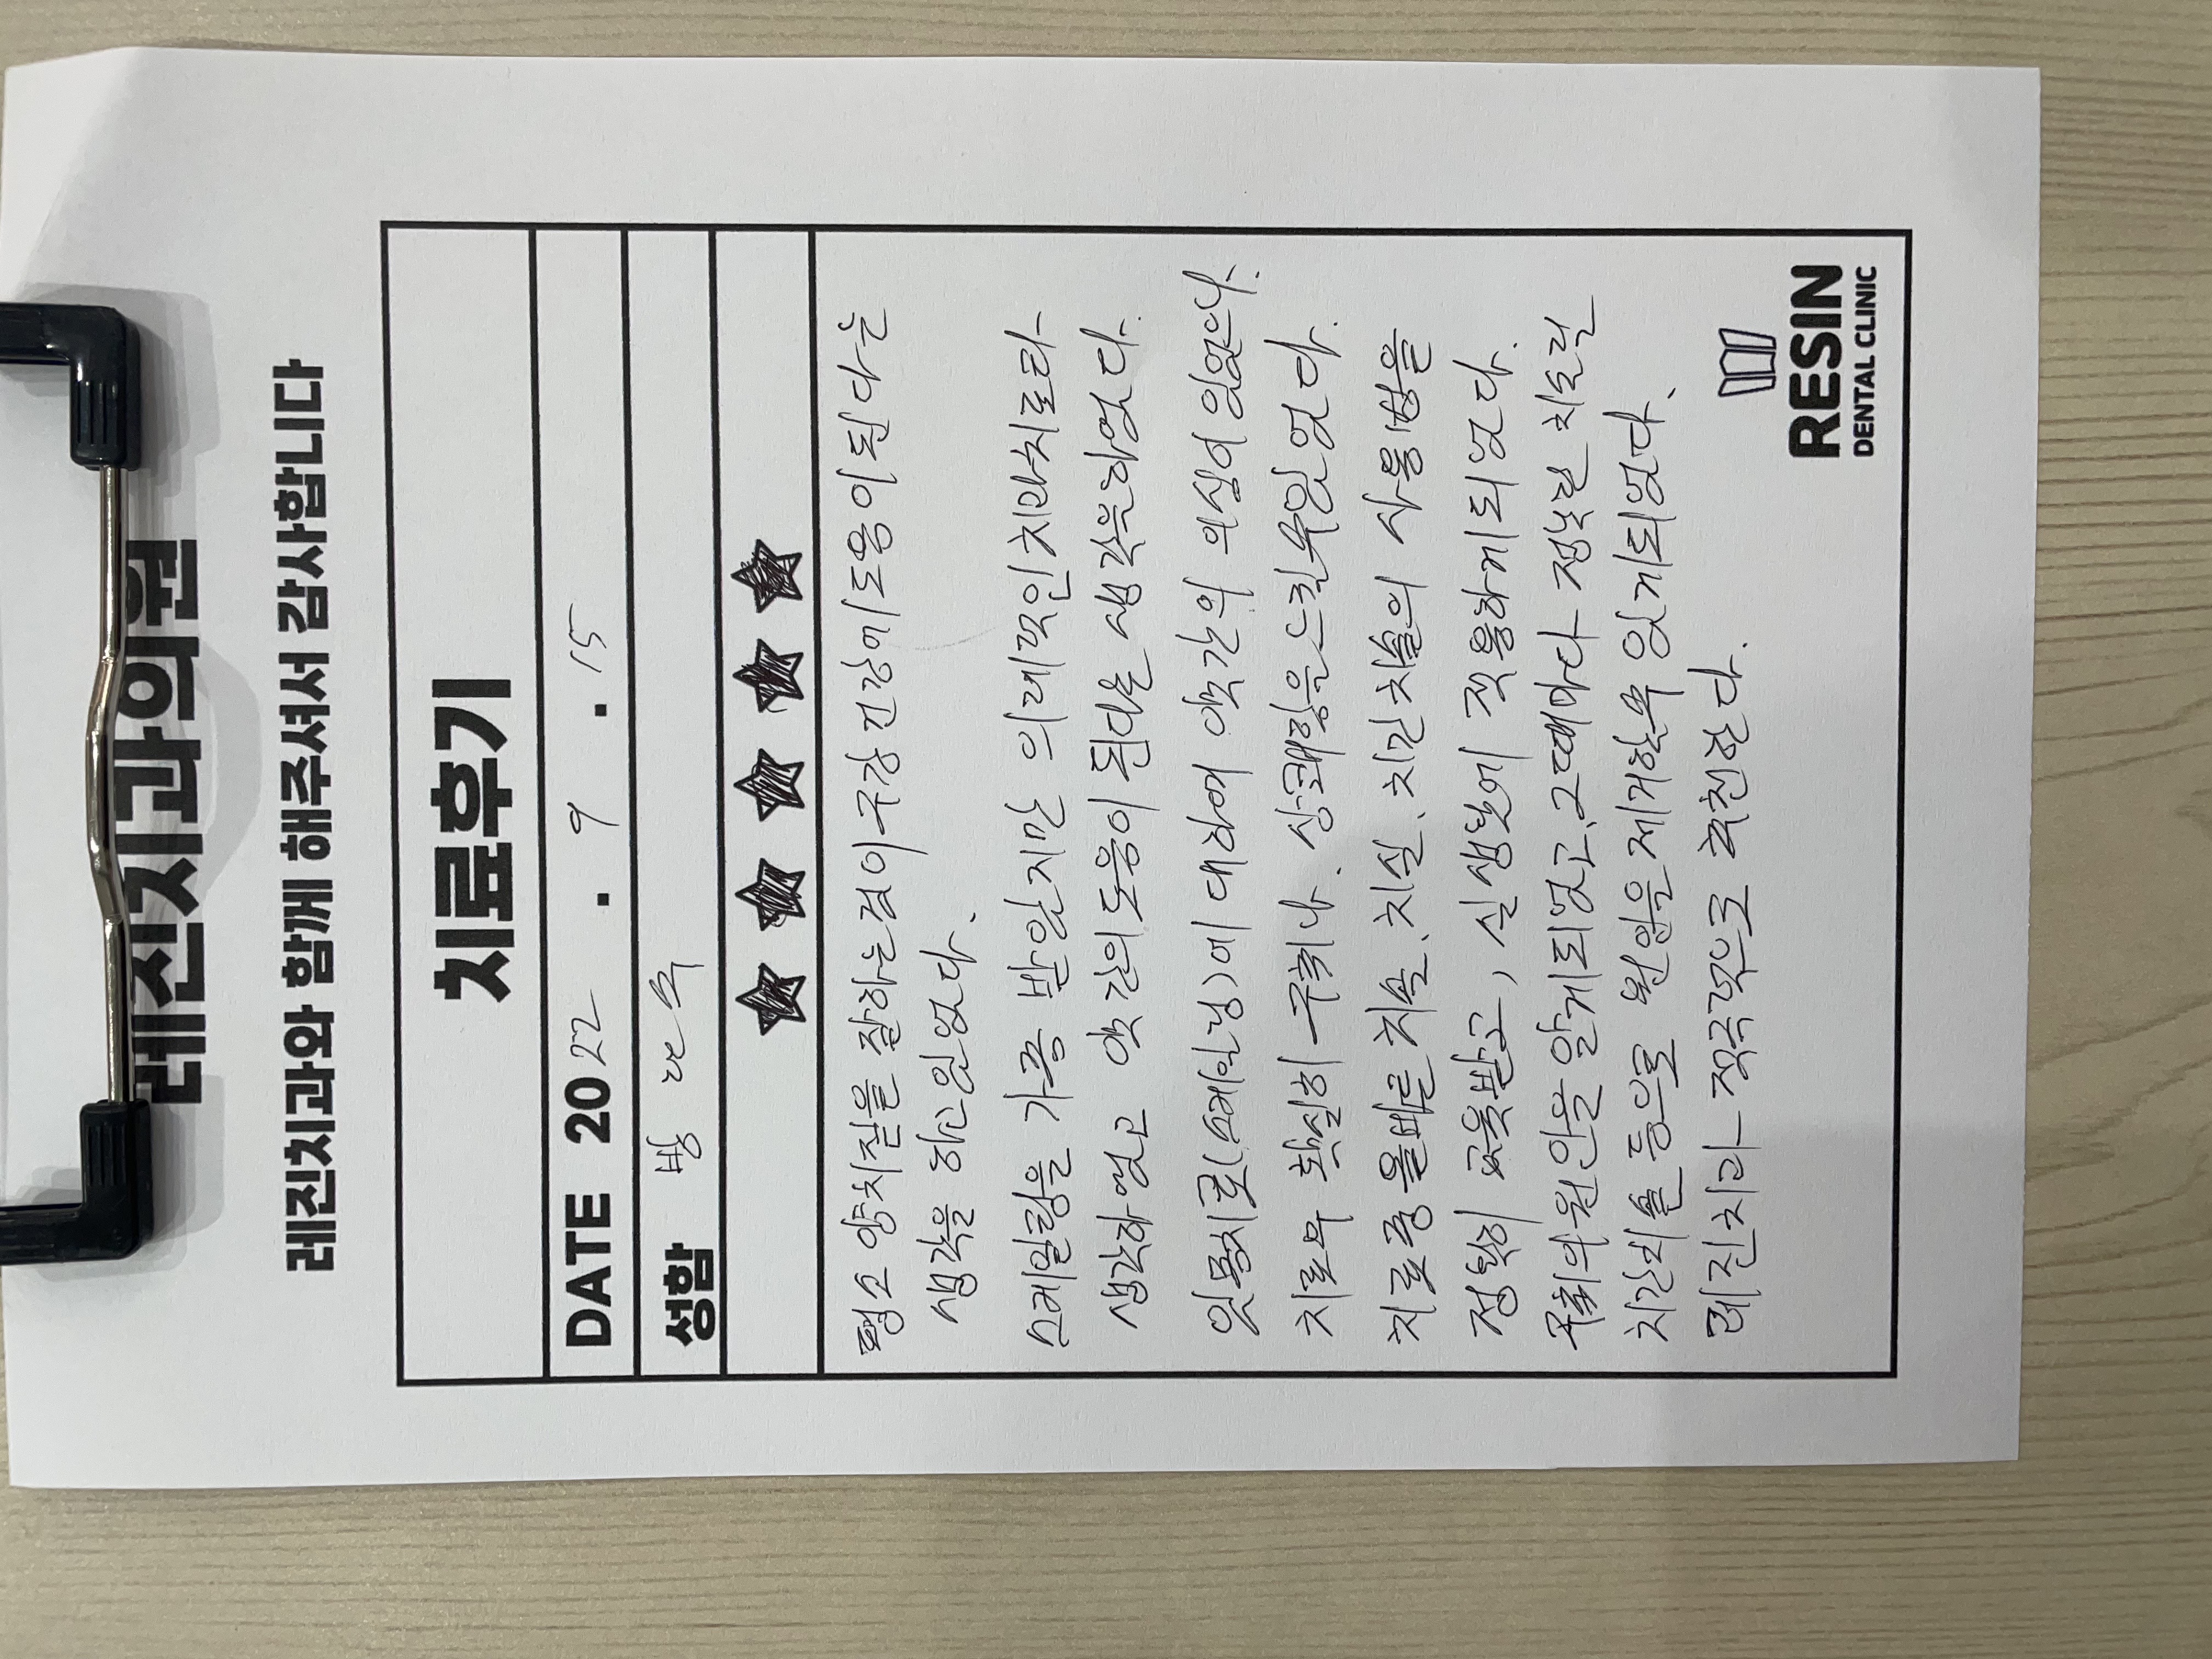 레진치과의원
레진치과와 함께 해주셔서 감사합니다
치료후기
DATE 2022 . 9 . 15
성함 방
평소 양치질을 잘하는것이 구강 건강에 도움이 된다는
생각을 하고 있었다.
스케일링을 가끔 받았지만 의례적인 치과치료라
생각하였고 약간의 도움이 된다는 생각을 하였다.
잇몸치료(스케일링)에 대하여 약간의 의심이 있었으나.
치료후 확실히 구취나. 상쾌함을 느낄수 있었다.
치료중 올바른 치솔, 치실, 치간치솔의 사용법을
정확히 교육받고, 실생활에 적용하게 되었다.
구취의 원인을 알게되었고, 그때마다 정확한 치실과
치간치솔 등으로 원인을 제거할수 있게되었다.
레진치과 적극적으로 추천한다.
RESIN
DENTAL CLINIC